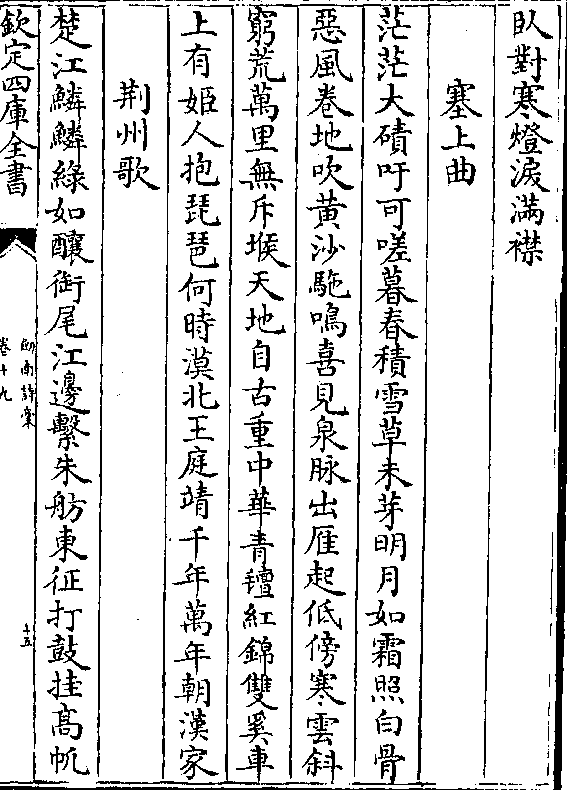 臥對寒燈淚滿襟
塞上曲
茫茫大磧吁可嗟暮春積雪草未芽明月如霜照白骨
惡風卷地吹黃沙駞鳴喜見泉脉出雁起低傍寒雲斜
窮荒萬里無斥堠天地自古重中華青氊紅錦雙奚車
上有姬人抱琵琶何時漠北王庭靖千年萬年朝漢家
荆州歌
楚江鱗鱗綠如釀銜尾江邊繫朱舫東征打鼓挂高帆
欽定四庫全書
劍南詩藁
卷十九
十五